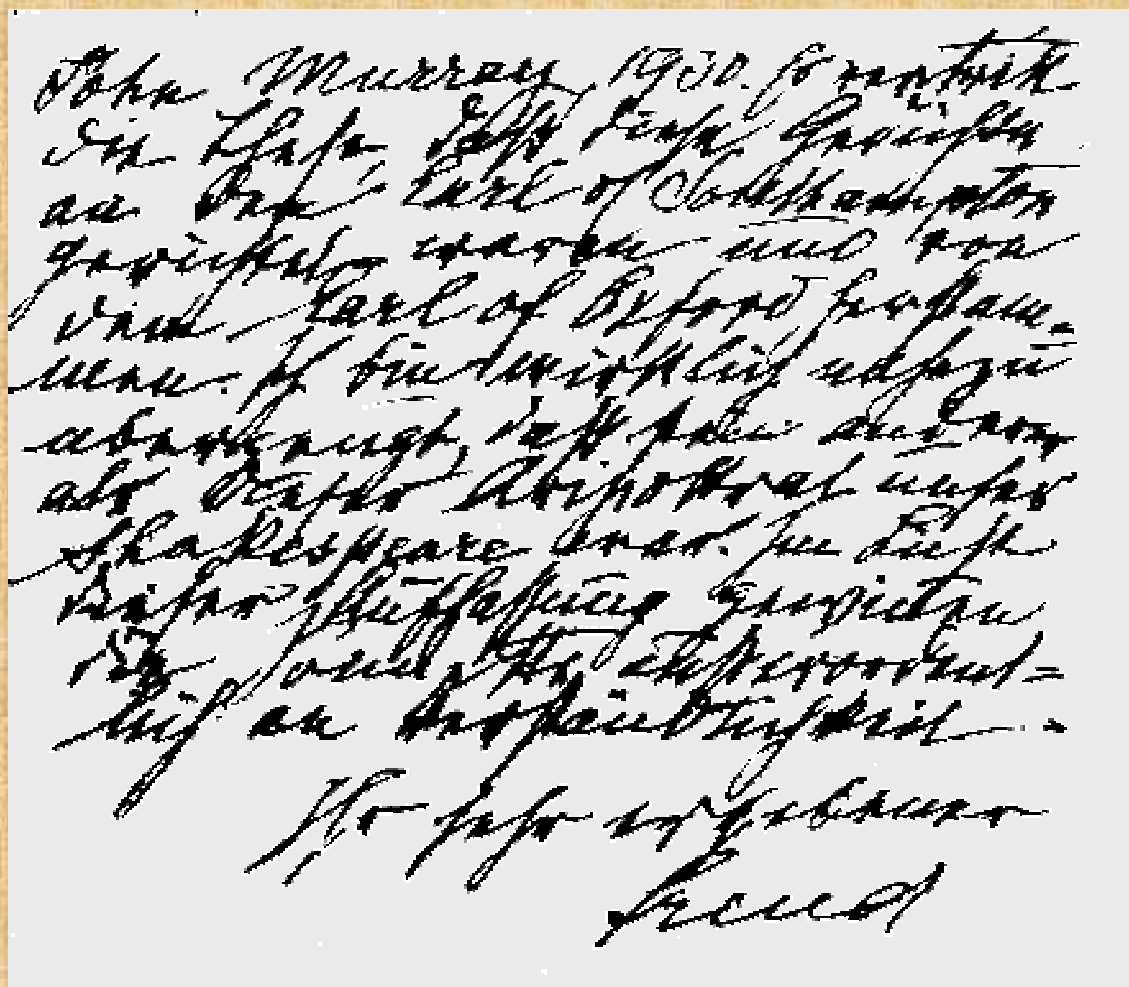 John Murray, 1930. Er vertritt
die These, daß diese Gedichte
an den Earl of Southampton
gerichtet waren und von
dem Earl of Oxford herstam-
men. Ich bin wirklich nahezu
überzeugt, daß kein anderer
als dieser Aristokrat unser
Shakespeare war. Im Licht
dieser Auffassung gewinnen
die Sonette außerordent=
lich an Verständlichkeit.
Ihr sehr ergebener
Freud